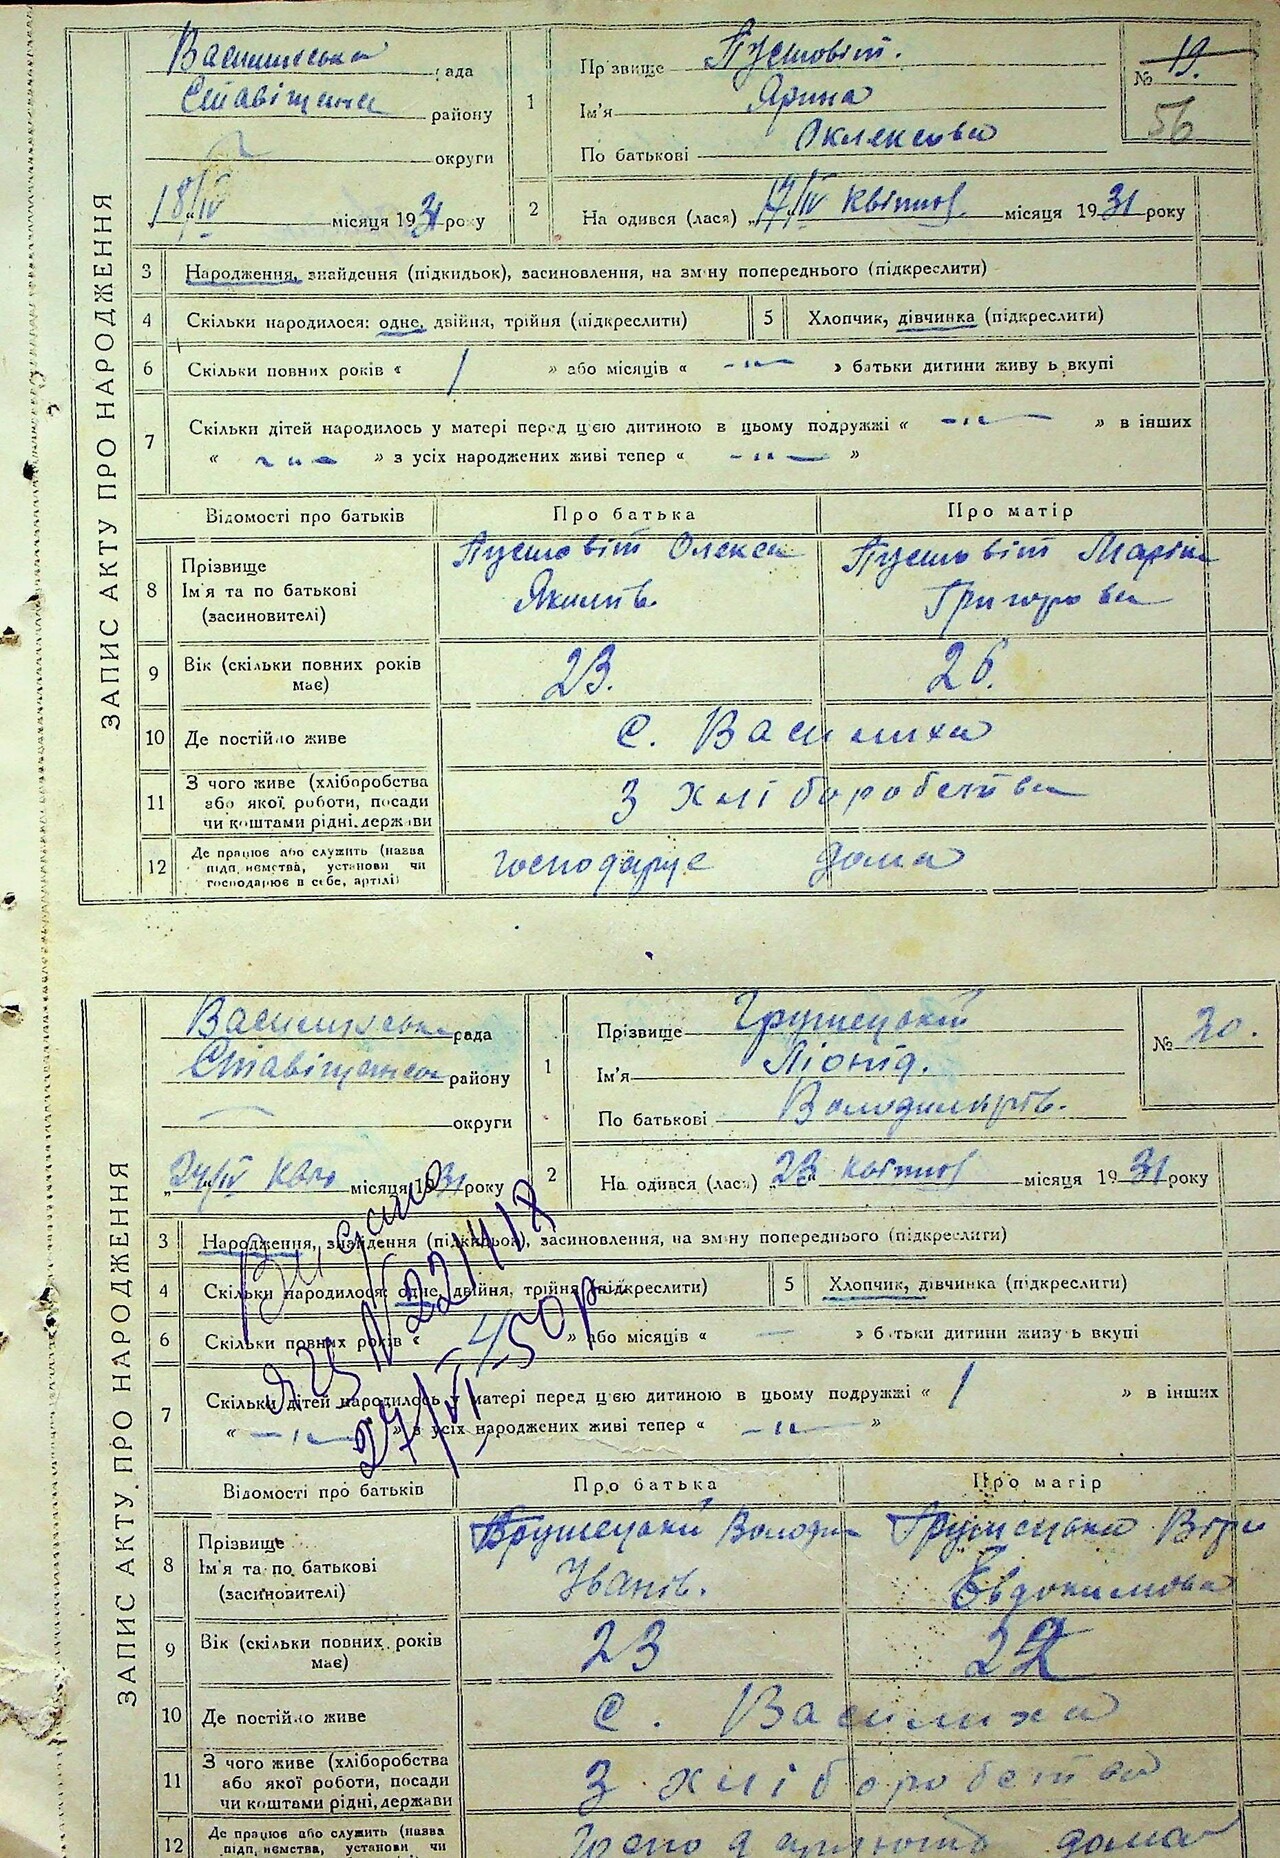 ЗАПИС АКТУ ПРО НАРОДЖЕННЯ
Василиська рада
Ставіщенс району
округи
18/IV місяця 1931 року
1
Прізвище Пустовіт.
Ім'я Ярина
По батькові Олексова
№ 19.
56
2
На одився (лася) „17/IV квітня місяця 1931 року
3 Народження, знайдення (підкидьок), засиновлення, на зм ну попереднього (підкреслити)
4 Скільки народилося: одне, двійня, трійня (підкреслити)
5 Хлопчик, дівчинка (підкреслити)
6 Скільки повних років « 1 » або місяців « -"- » батьки дитини живу ь вкупі
7 Скільки дітей народилось у матері перед цією дитиною в цьому подружжі « -"- » в інших
« -"- » з усіх народжених живі тепер « -"- »
Відомості про батьків Про батька Про матір
8 Прізвище
Ім'я та по батькові
(засиновителі)
Пустовіт Олекса
Якимів.
Пустовіт Марія
Григорова
9 Вік (скільки повних років має)
23. 26.
10 Де постійно живе
С. Василиха
11 З чого живе (хліборобства
або якої роботи, посади
чи коштами рідні, держави
З хліборобства
12 Де працює або служить (назва
підп, немства, установи чи
господарює в себе, артілі)
господарує дома
ЗАПИС АКТУ ПРО НАРОДЖЕННЯ
Василиська рада
Ставіщенс району
округи
„24/IV Квіт місяця 1931 року
1
Прізвище Грушецький
Ім'я Ліонід.
По батькові Володимирів.
№ 20.
2
На одився (лася) „23 квітня місяця 1931 року
3 Народження, знайдення (підкидьок), засиновлення, на зм ну попереднього (підкреслити)
4 Скільки народилося: одне, двійня, трійня (підкреслити)
5 Хлопчик, дівчинка (підкреслити)
6 Скільки повних років « 4 » або місяців « — » батьки дитини живу ь вкупі
7 Скільки дітей народилось у матері перед цією дитиною в цьому подружжі « 1 » в інших
« -"- » з усіх народжених живі тепер « -"- »
27/VI-50р
Відомості про батьків Про батька Про матір
8 Прізвище
Ім'я та по батькові
(засиновителі)
Грушецький Володим
Іванів.
Грушецька Віра
Евдокимова
9 Вік (скільки повних років має)
23 22
10 Де постійно живе
С. Василиха
11 З чого живе (хліборобства
або якої роботи, посади
чи коштами рідні, держави
З хліборобства
12 Де працює або служить (назва
підп, немства, установи чи
Господарюють дома